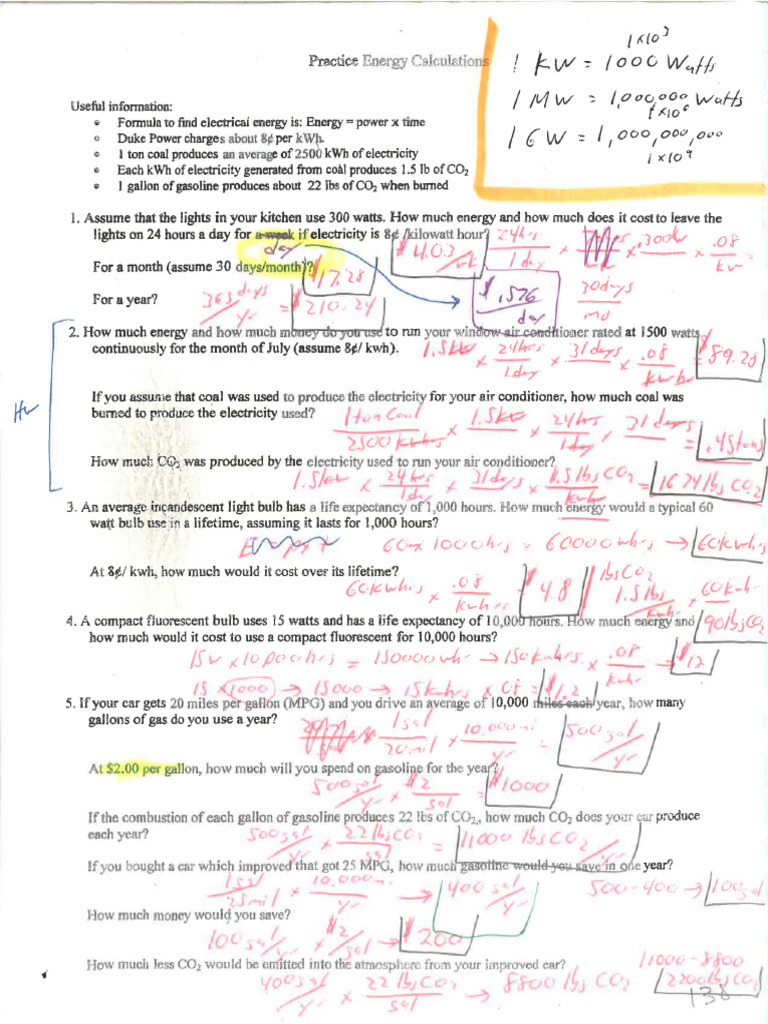 1x10³
Practice Energy Calculations
1 KW = 1000 Watts
1 MW = 1,000,000 Watts
1x10⁶
1 GW = 1,000,000,000
1x10⁹
Useful information:
• Formula to find electrical energy is: Energy = power x time
• Duke Power charges about 8¢ per kWh.
• 1 ton coal produces an average of 2500 kWh of electricity
• Each kWh of electricity generated from coal produces 1.5 lb of CO₂
• 1 gallon of gasoline produces about 22 lbs of CO₂ when burned
1. Assume that the lights in your kitchen use 300 watts. How much energy and how much does it cost to leave the
lights on 24 hours a day for a week if electricity is 8¢ /kilowatt hour?
day
$4.03/wk
24hrs/1day x .300kw x .08/kw =
For a month (assume 30 days/month)?
$17.28
$.576/day
30days/mo
For a year?
365 days/yr
$210.24
2. How much energy and how much money do you use to run your window air conditioner rated at 1500 watts
continuously for the month of July (assume 8¢/ kwh).
1.5kw x 24hrs/1day x 31days x .08/kwhr = $89.28
Hw
If you assume that coal was used to produce the electricity for your air conditioner, how much coal was
burned to produce the electricity used?
1ton Coal/2500 kwhrs x 1.5kw x 24hrs/1day x 31days = .45tons
How much CO₂ was produced by the electricity used to run your air conditioner?
1.5kw x 24hrs/1day x 31days x 1.5lbs CO₂/kwhr = 1674lbs CO₂
3. An average incandescent light bulb has a life expectancy of 1,000 hours. How much energy would a typical 60
watt bulb use in a lifetime, assuming it lasts for 1,000 hours?
60w x 1000hrs = 60000whrs → 60kwhrs
At 8¢/ kwh, how much would it cost over its lifetime?
60kwhrs x .08/kwhrs = $4.8
lbsCO₂
1.5lbs/kwhr x 60kwh = 90lbsCO₂
4. A compact fluorescent bulb uses 15 watts and has a life expectancy of 10,000 hours. How much energy and
how much would it cost to use a compact fluorescent for 10,000 hours?
15w x 10,000hrs = 150000whr → 150kwhrs x .08/kwhr = $12
15 x 1000 → 15000 → 15kwhrs x .08 = $1.2
5. If your car gets 20 miles per gallon (MPG) and you drive an average of 10,000 miles each year, how many
gallons of gas do you use a year?
1gal/20mil x 10,000mi/yr = 500gal/yr
At $2.00 per gallon, how much will you spend on gasoline for the year?
500gal/yr x $2/gal = $1000
If the combustion of each gallon of gasoline produces 22 lbs of CO₂, how much CO₂ does your car produce
each year?
500gal/yr x 22lbsCO₂/gal = 11000 lbsCO₂/yr
If you bought a car which improved that got 25 MPG, how much gasoline would you save in one year?
1gal/25mil x 10,000mi/yr → 400gal/yr
500-400 → 100gal
How much money would you save?
100gal/yr x $2/gal → $200
How much less CO₂ would be emitted into the atmosphere from your improved car?
11000-8800
400gal/yr x 22lbsCO₂/gal → 8800 lbs CO₂
2200lbsCO₂
138